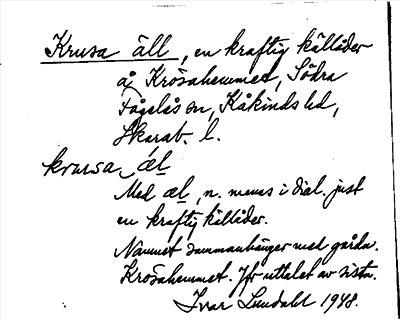 Krusa äll, en kraftig källåder
å Krösahemmet, Södra
Fågelås sn, Kåkinds hd,
Skarab. l.
krusa äl
Med äl, n. menas i dial. just
en kraftig källåder.
Namnet sammanhänger med gårdn.
Krösahemmet. Jfr uttalet av sista.
Ivar Lundahl 1948.